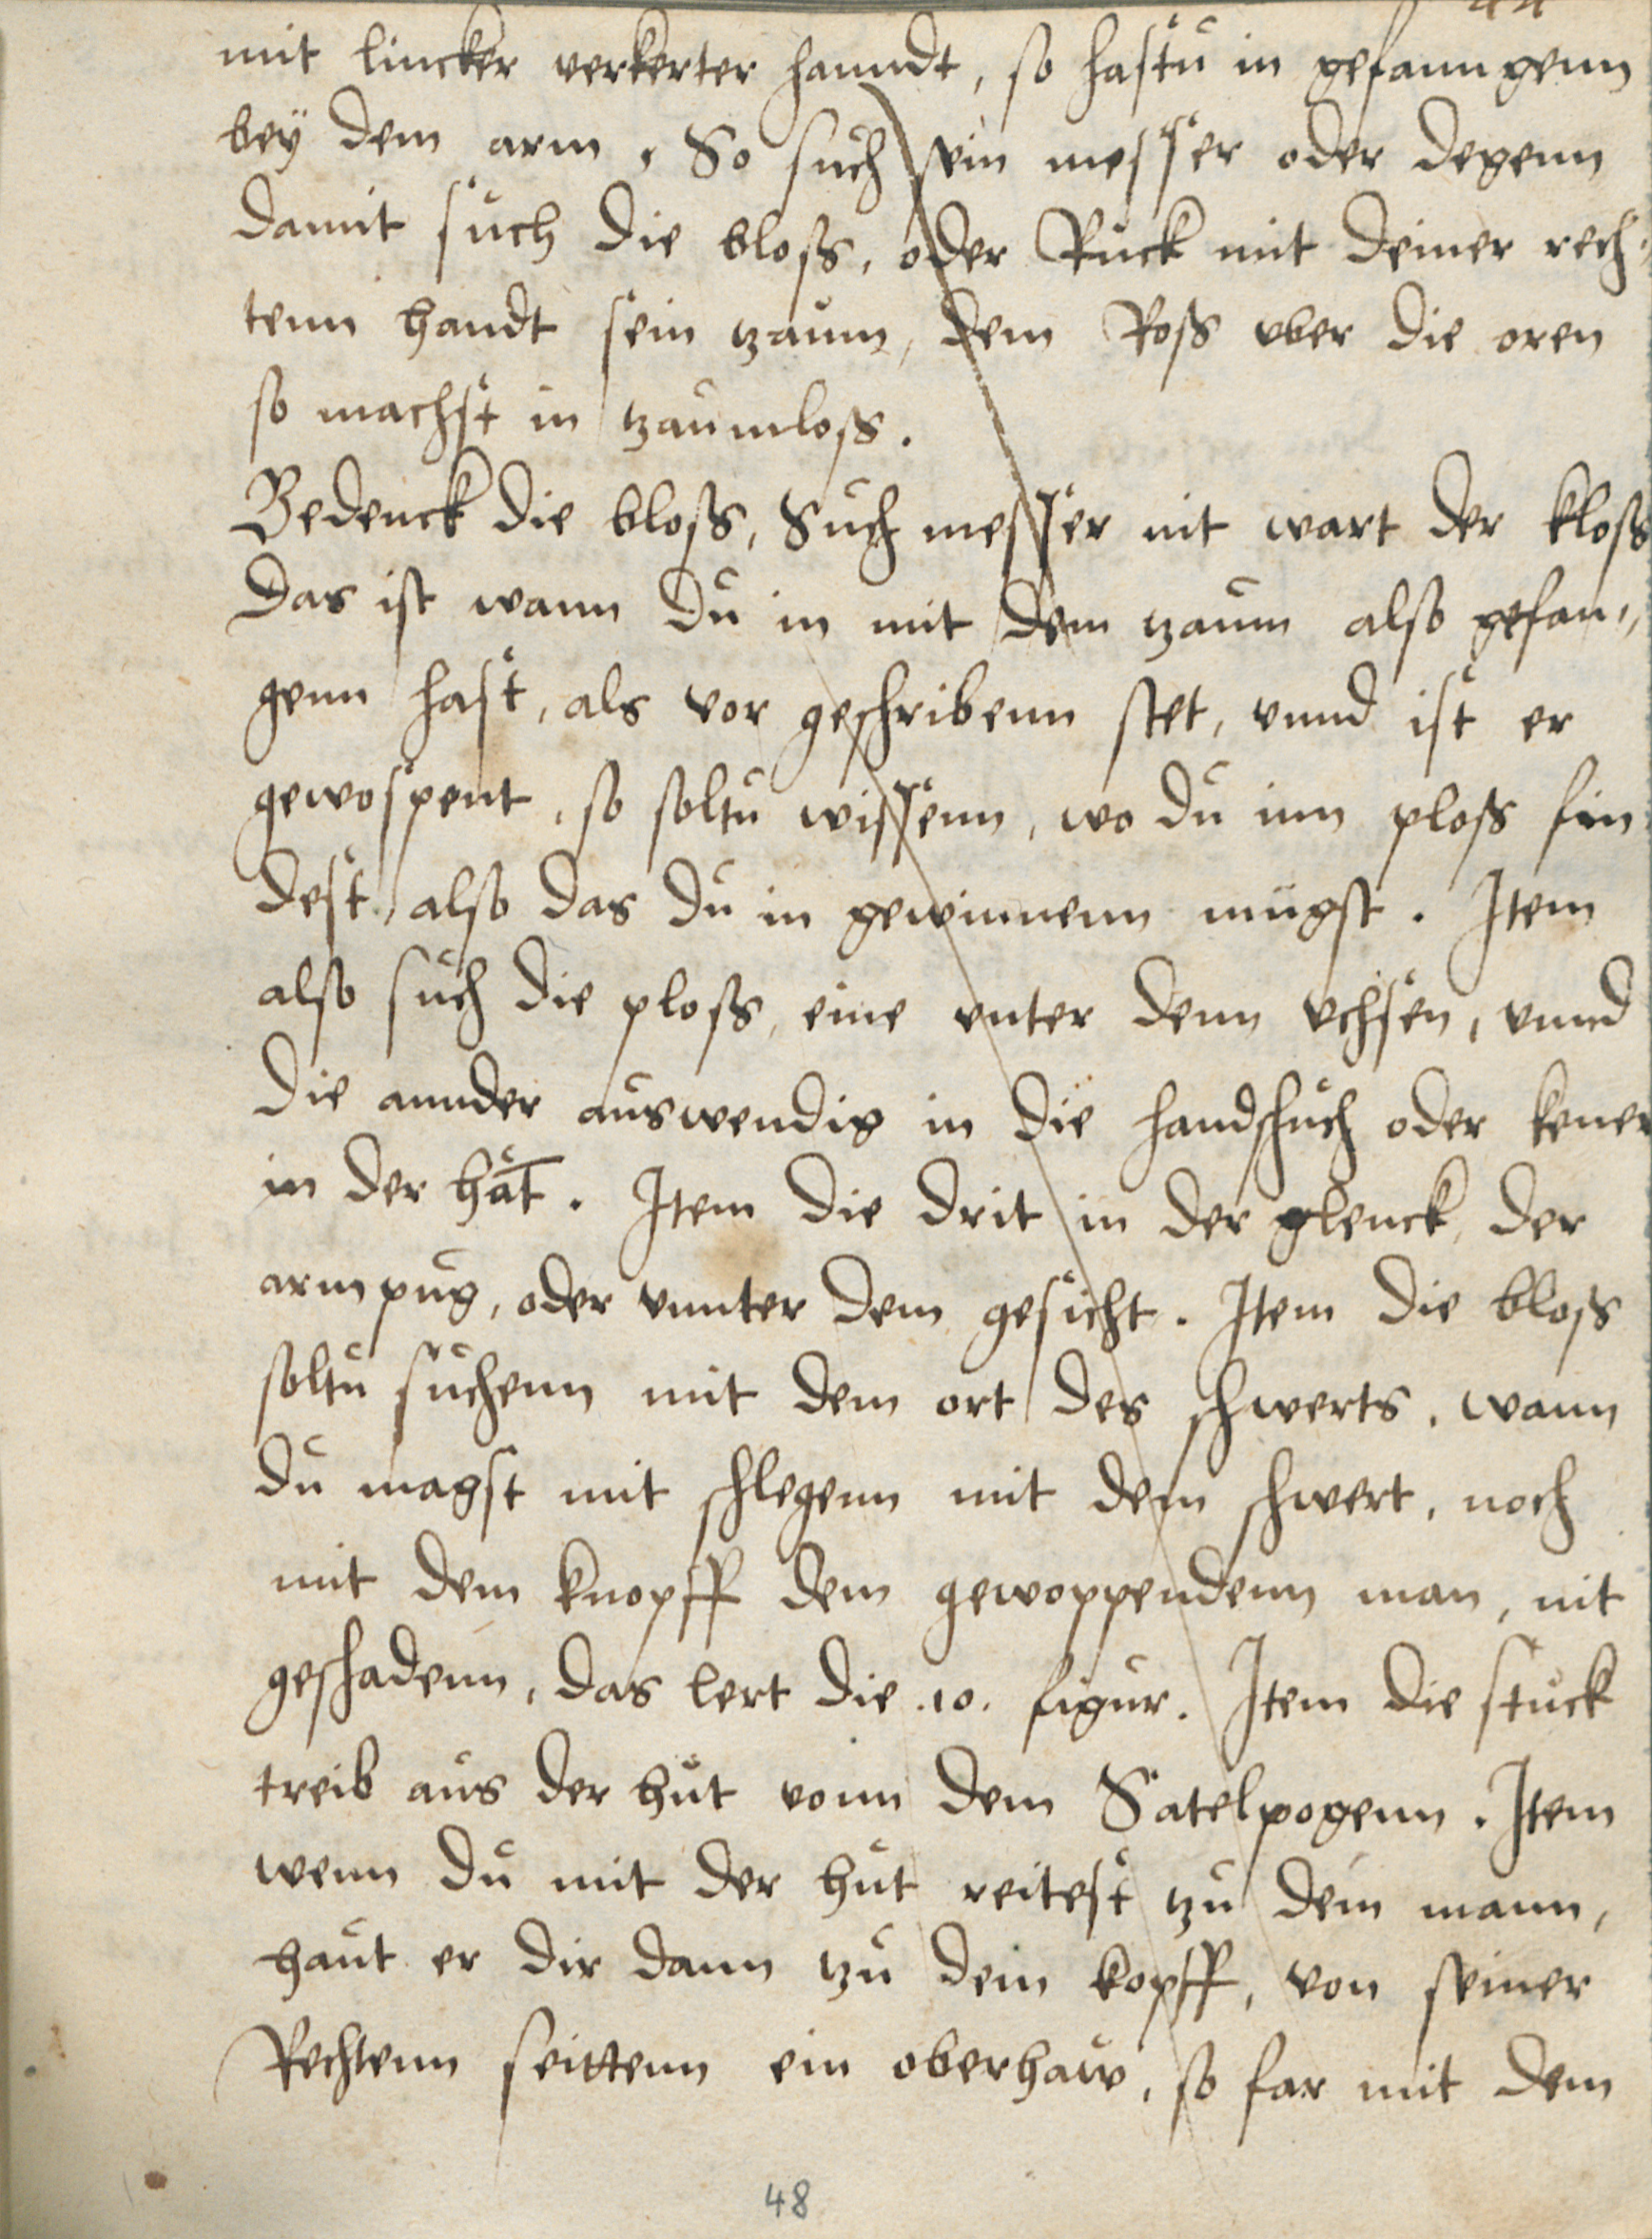 mit lincker verkerter hanndt, so hastu in gefanngenn
bey dem arm, So such sein messer oder degenn
damit such die bloss, oder Ruck mit deiner rech,,
tenn handt sein tzaum, dem Ross vber die oren
so machst in tzaumloss.
Bedenck die bloss, Such messer nit wart der kloss
Das ist wann du in mit dem tzaum also gefan,,
genn hast, als vor geschribenn stet, vnnd ist er
gewospent, so soltu wissenn, wo du inn ploss fin
dest, also das du in gewinnenn mügst. Item
also such die ploss, eine vnter denn vchsen, vnnd
die annder auswendig in die handschuch oder kener
in der hāt. Item die drit in der glenck, der
armpug, oder vnnter dem gesicht. Item die bloss
soltu suchenn mit dem ort des schwerts, wann
du magst mit schlegenn mit dem schwert, noch
mit dem knopff dem gewoppendenn man, nit
geschadenn, das lert die .10. figur. Item die stuck
treib aus der hut vonn dem Satelpogenn. Item
wenn du mit der hut reitest tzu dem mann,
haut er dir dann tzu dem kopff, von seiner
Rechtenn seittenn ein oberhaw, so far mit dem
48